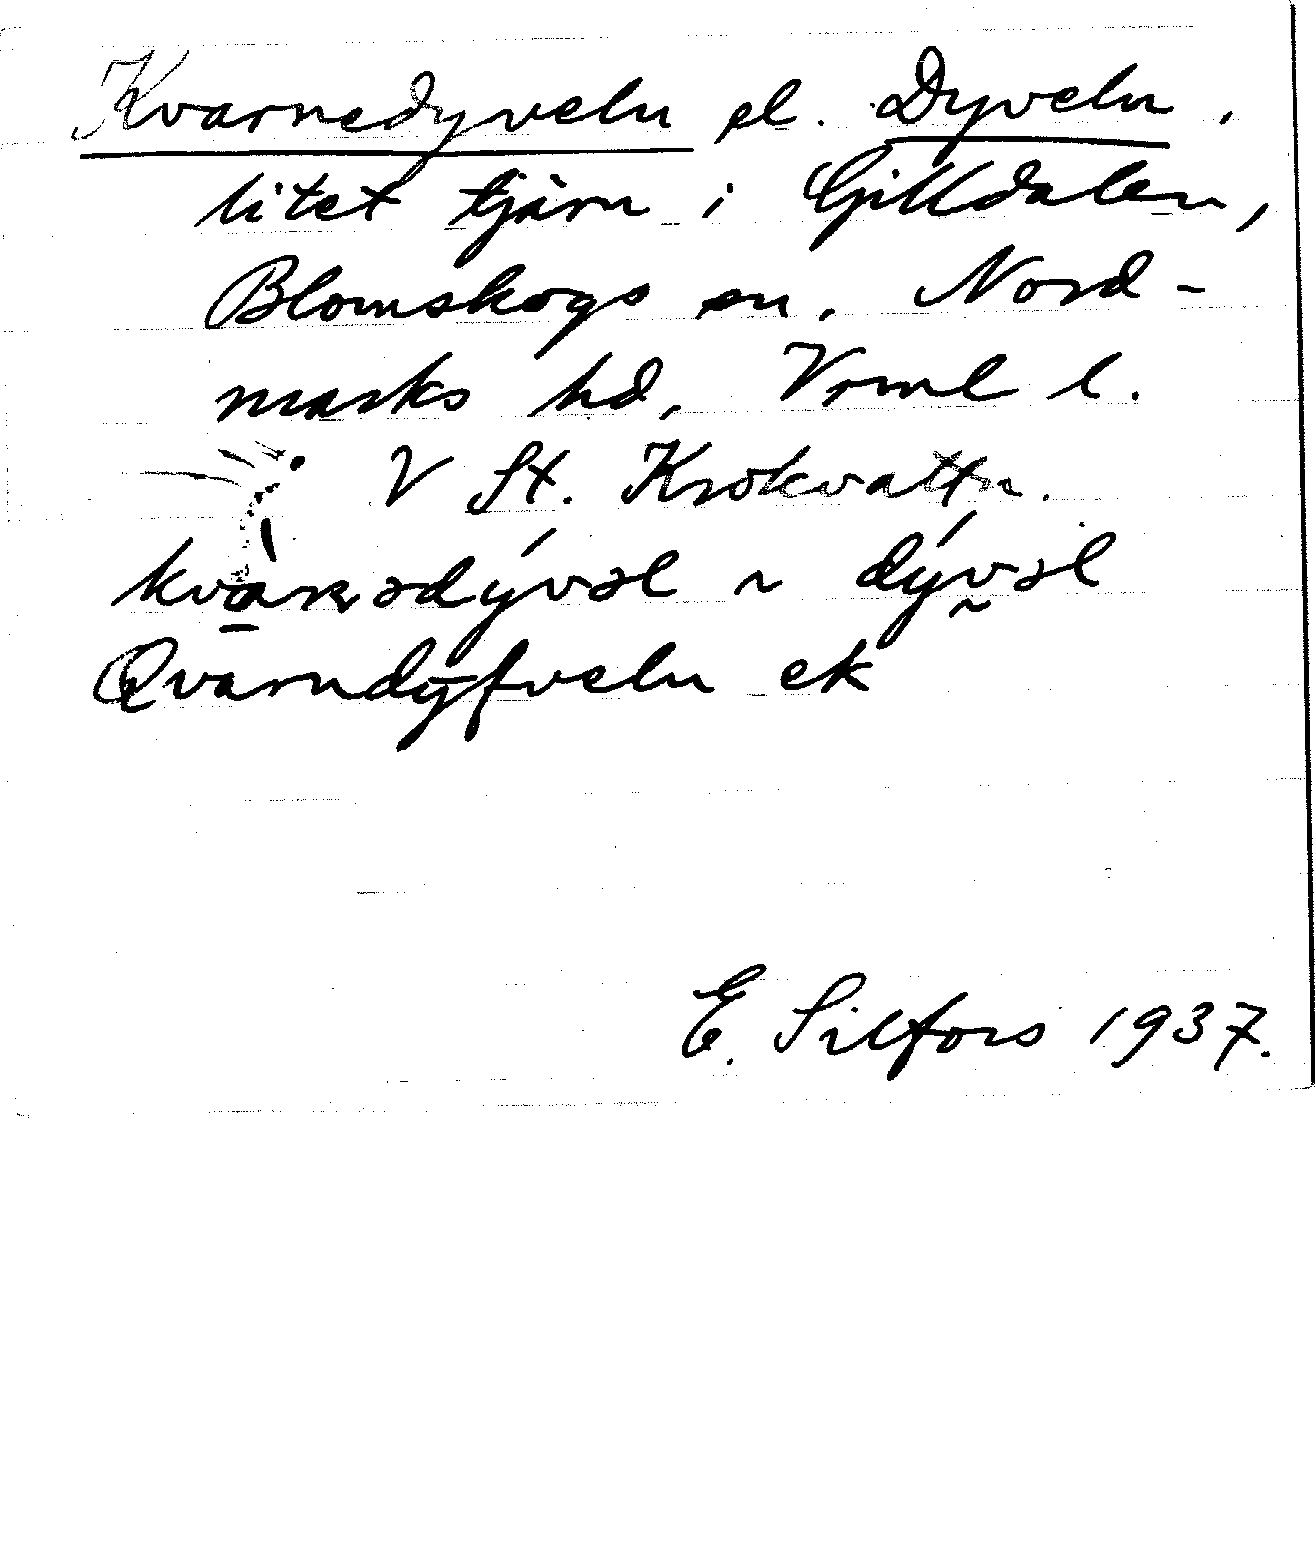 Kvarnedyveln el. Dyveln,
litet tjärn i Gilldalen,
Blomskogs sn, Nord-
marks hd, Vrml l.
V St. Krokvattn.
dývəl
Qvarndyfveln ek
E. Silfors 1937.